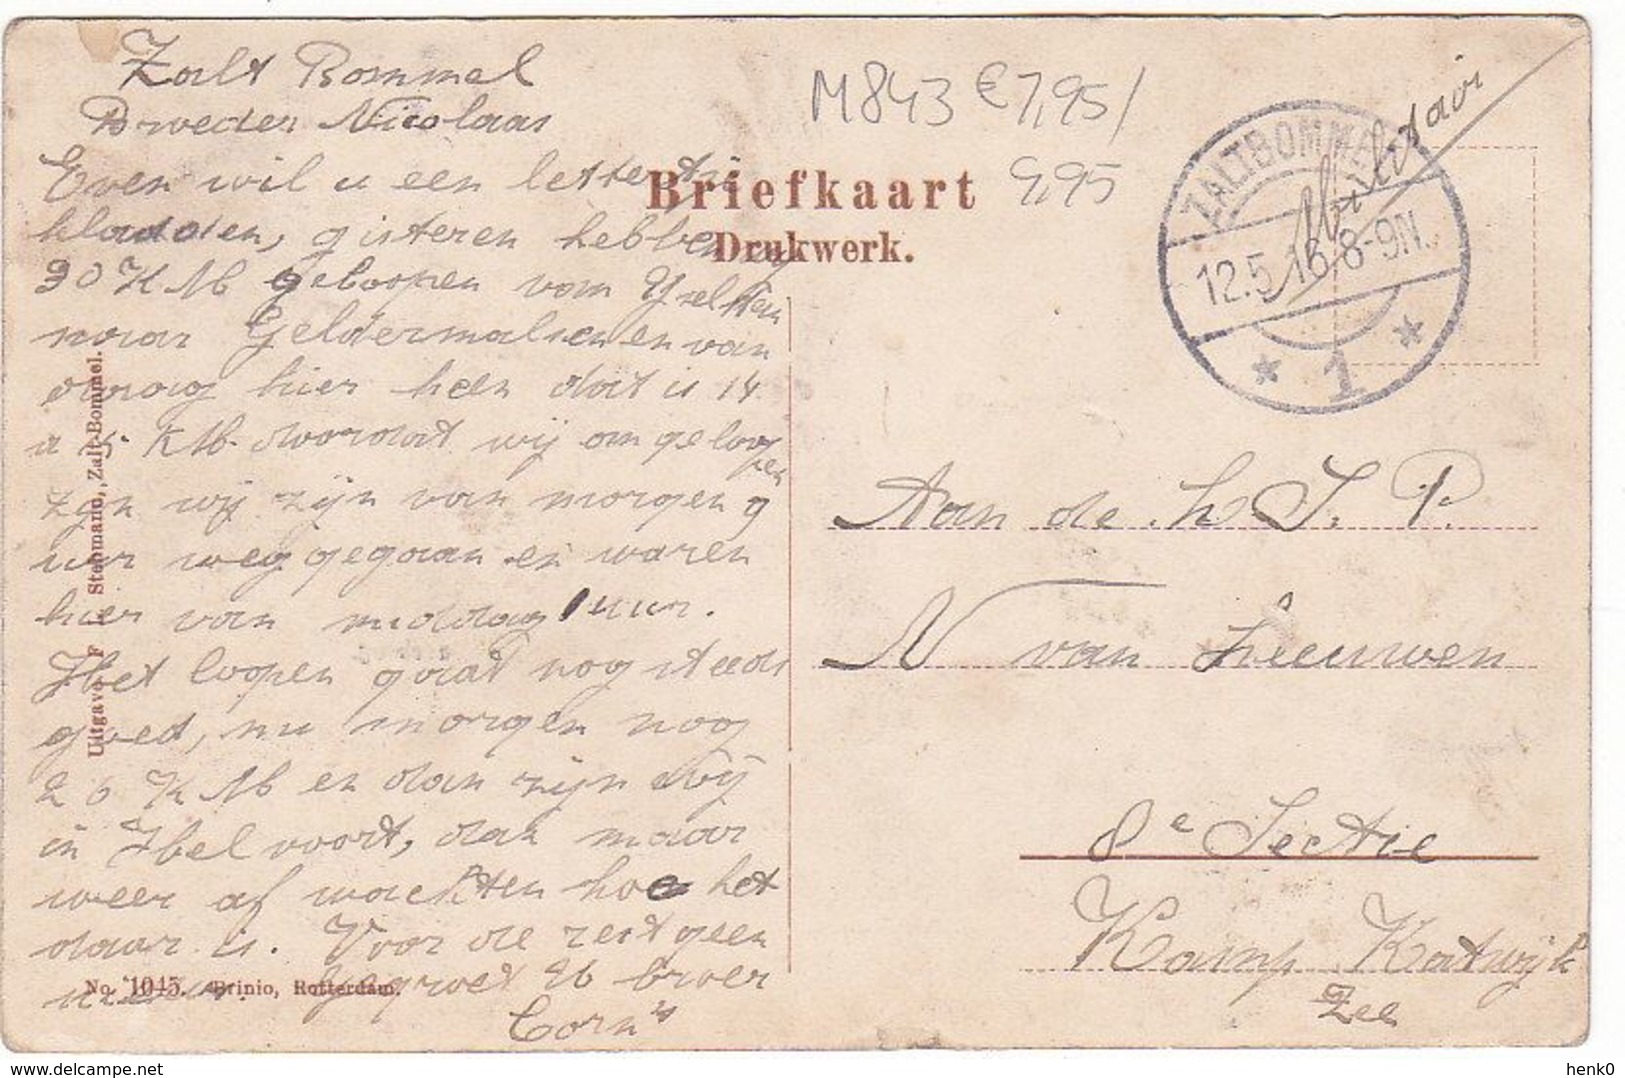 Zalt Bommel
Broeder Nicolaas
Even wil u een lettertje
kladden, gisteren hebben wij
30 KM geloopen van Yselstein
naar Geldermalsen en van
daag hier heen dat is 14
a 15 KM doordat wij omgeloopen
zyn wij zijn van morgen 9
uur weg gegaan en waren
hier van middag 1 uur.
Het loopen gaat nog steeds
goed, nu morgen nog
20 KM en dan zijn wij
in Helvoort, dan maar
weer af wachten hoe het
daar is. Voor de rest geen
nieuws. Gegroet Uw broer
Corn's
Uitgave F Stenmans, Zalt-Bommel.
No. 1045. Brinio, Rotterdam.
Briefkaart
Drukwerk.
M843 € 7,95/
9,95
Militair
ZALTBOMMEL
12.5.16. 8-9N.
* 1 *
Aan de h S. P.
N van Leeuwen
8e Sectie
Kamp Katwijk
Zee
henk0